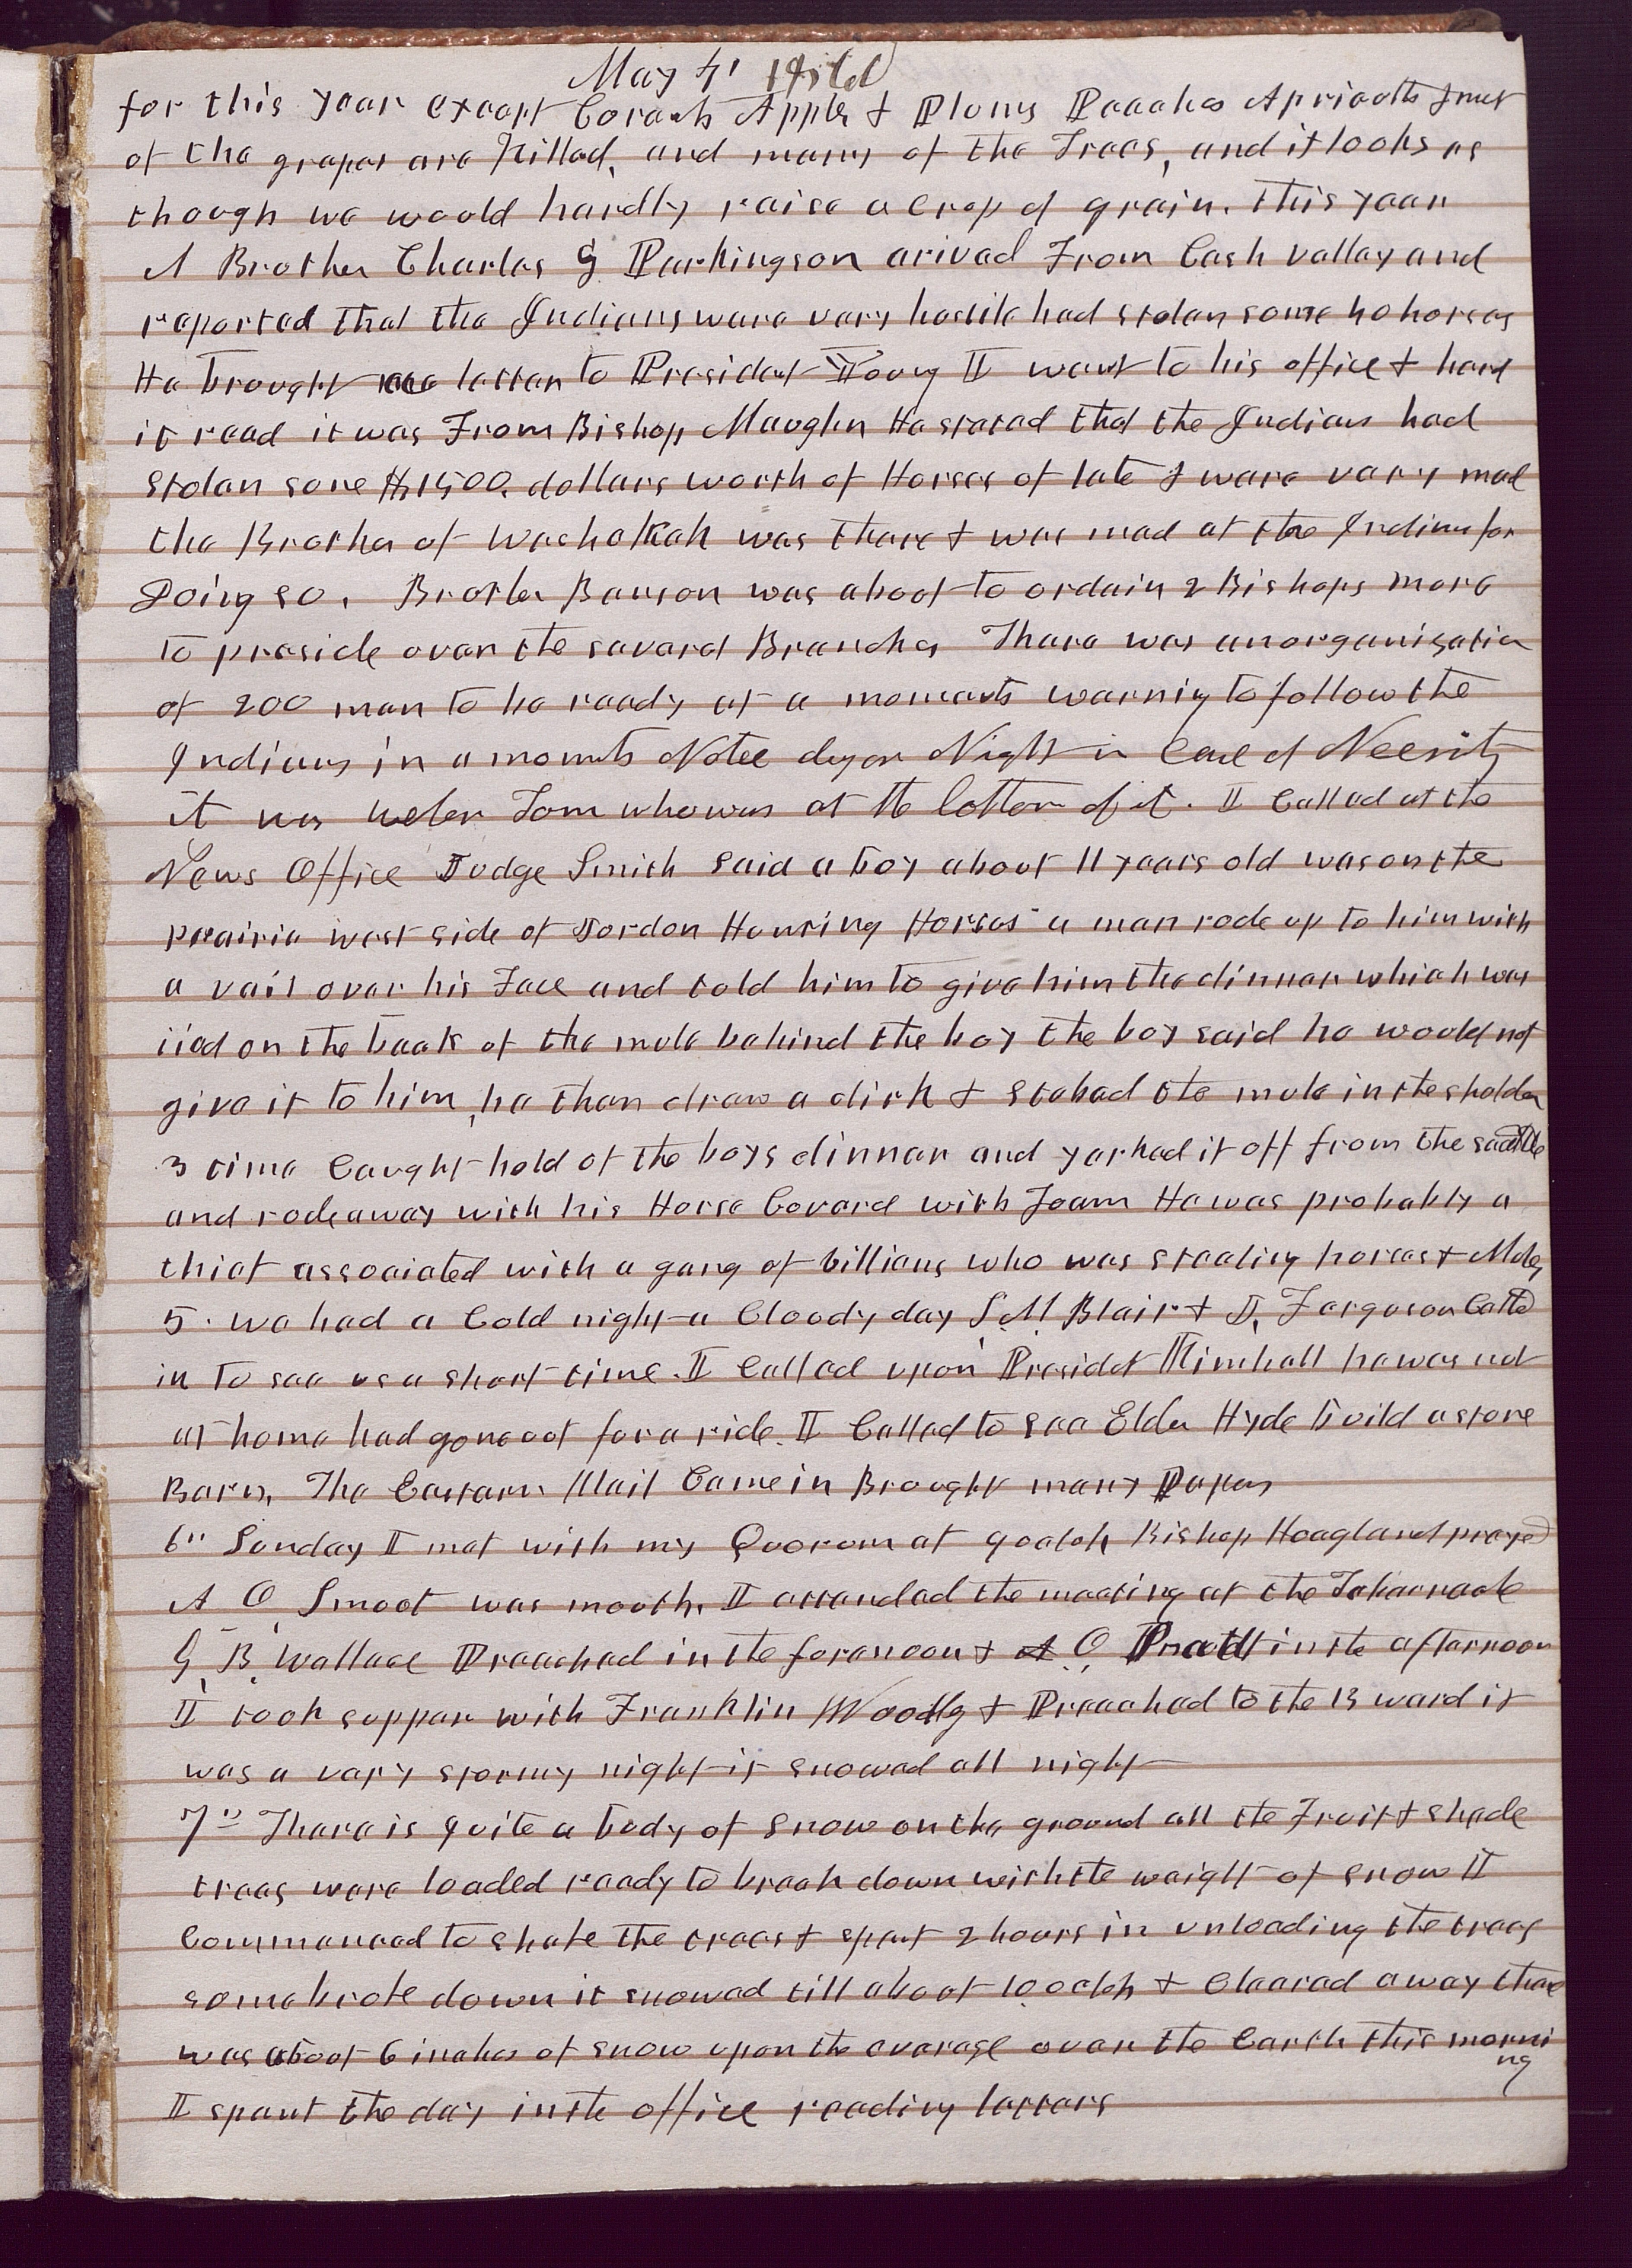 May 4th
for this year except Corants Apples & Plums Peaches Apricotts & most
of the grapes are Killed, and many of the Trees, and it looks as
though we would hardly raise a Crop of grain. this year
A Brother Charles G Parkingson arived From Cash valley and
reported that the Indians ware vary hostile had stolen some 40 horses
He brought a letter to President Young I went to his office & herd
it read it was From Bishop Maughn He stated that the Indians had
stolen some $1500. dollars worth of Horses of late & ware vary mad
the Brother of Washakeah was there & was mad at the Indians for
Doing so. Brother Benson was about to ordain 2 Bishops more
to preside over the several Branches There was an organization
of 200 men to be ready at a moments warning to follow the
Indians in a moments Notice day or Night in Case of Necessity
it was Weber Tom who was at the bottom of it. I Called at the
News Office Judge Smith said a boy about 11 years old was on the
prairie west side of Jordon Hunting Horses a man rode up to him with
a vail over his Face and told him to give him the dinner which was
tied on the back of the mule behind the boy the boy said he would not
give it to him, he then drew a dirk & stabed the mule in the sholder
3 time Caught hold of the boys dinner and yerked it off from the saddle
and rode away with his Horse Coverd with Foam He was probably a
thief associated with a gang of villians who was stealing horses & Mules
5. we had a Cold night a Cloody day S. M. Blair & J. Ferguson Called
in to see us a short time. I Called upon Presidet Kimball he was not
at home had gone out for a ride. I Called to see Elder Hyde build a stone
Barn, The Eastern Mail Came in Brought many Papers
6" Sunday I met with my Quorom at 9 oclok Bishop Hoagland prayed
A O Smoot was mouth. I attended the meeting at the Tabernacle
G. B. Wallace Preached in the forenoon & O. Pratt in the afternoon
I took supper with Franklin Woolly & Preached to the 13 ward it
was a vary stormy night it snowed all night
7" There is quite a body of snow on the ground all the Fruit & shade
trees were loaded ready to break down with the weight of snow I
Commenced to shake the trees & spent 2 hours in unloading the trees
some broke down it snowed till about 10 oclok & Cleared away there
was about 6 inches of snow upon the average over the Earth this morni
ng
I spent the day in the office reading letters